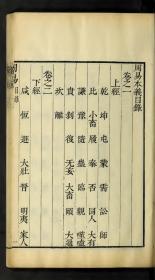 周易本義目錄
卷之一
上經
乾 坤 屯 蒙 需 訟 師
比 小畜 履 泰 否 同人 大有
謙 豫 隨 蠱 臨 觀 噬嗑
賁 剥 復 无妄 大畜 頤 大過
坎 離
卷之二
下經
咸 恆 遯 大壯 晉 明夷 家人
周易
目錄